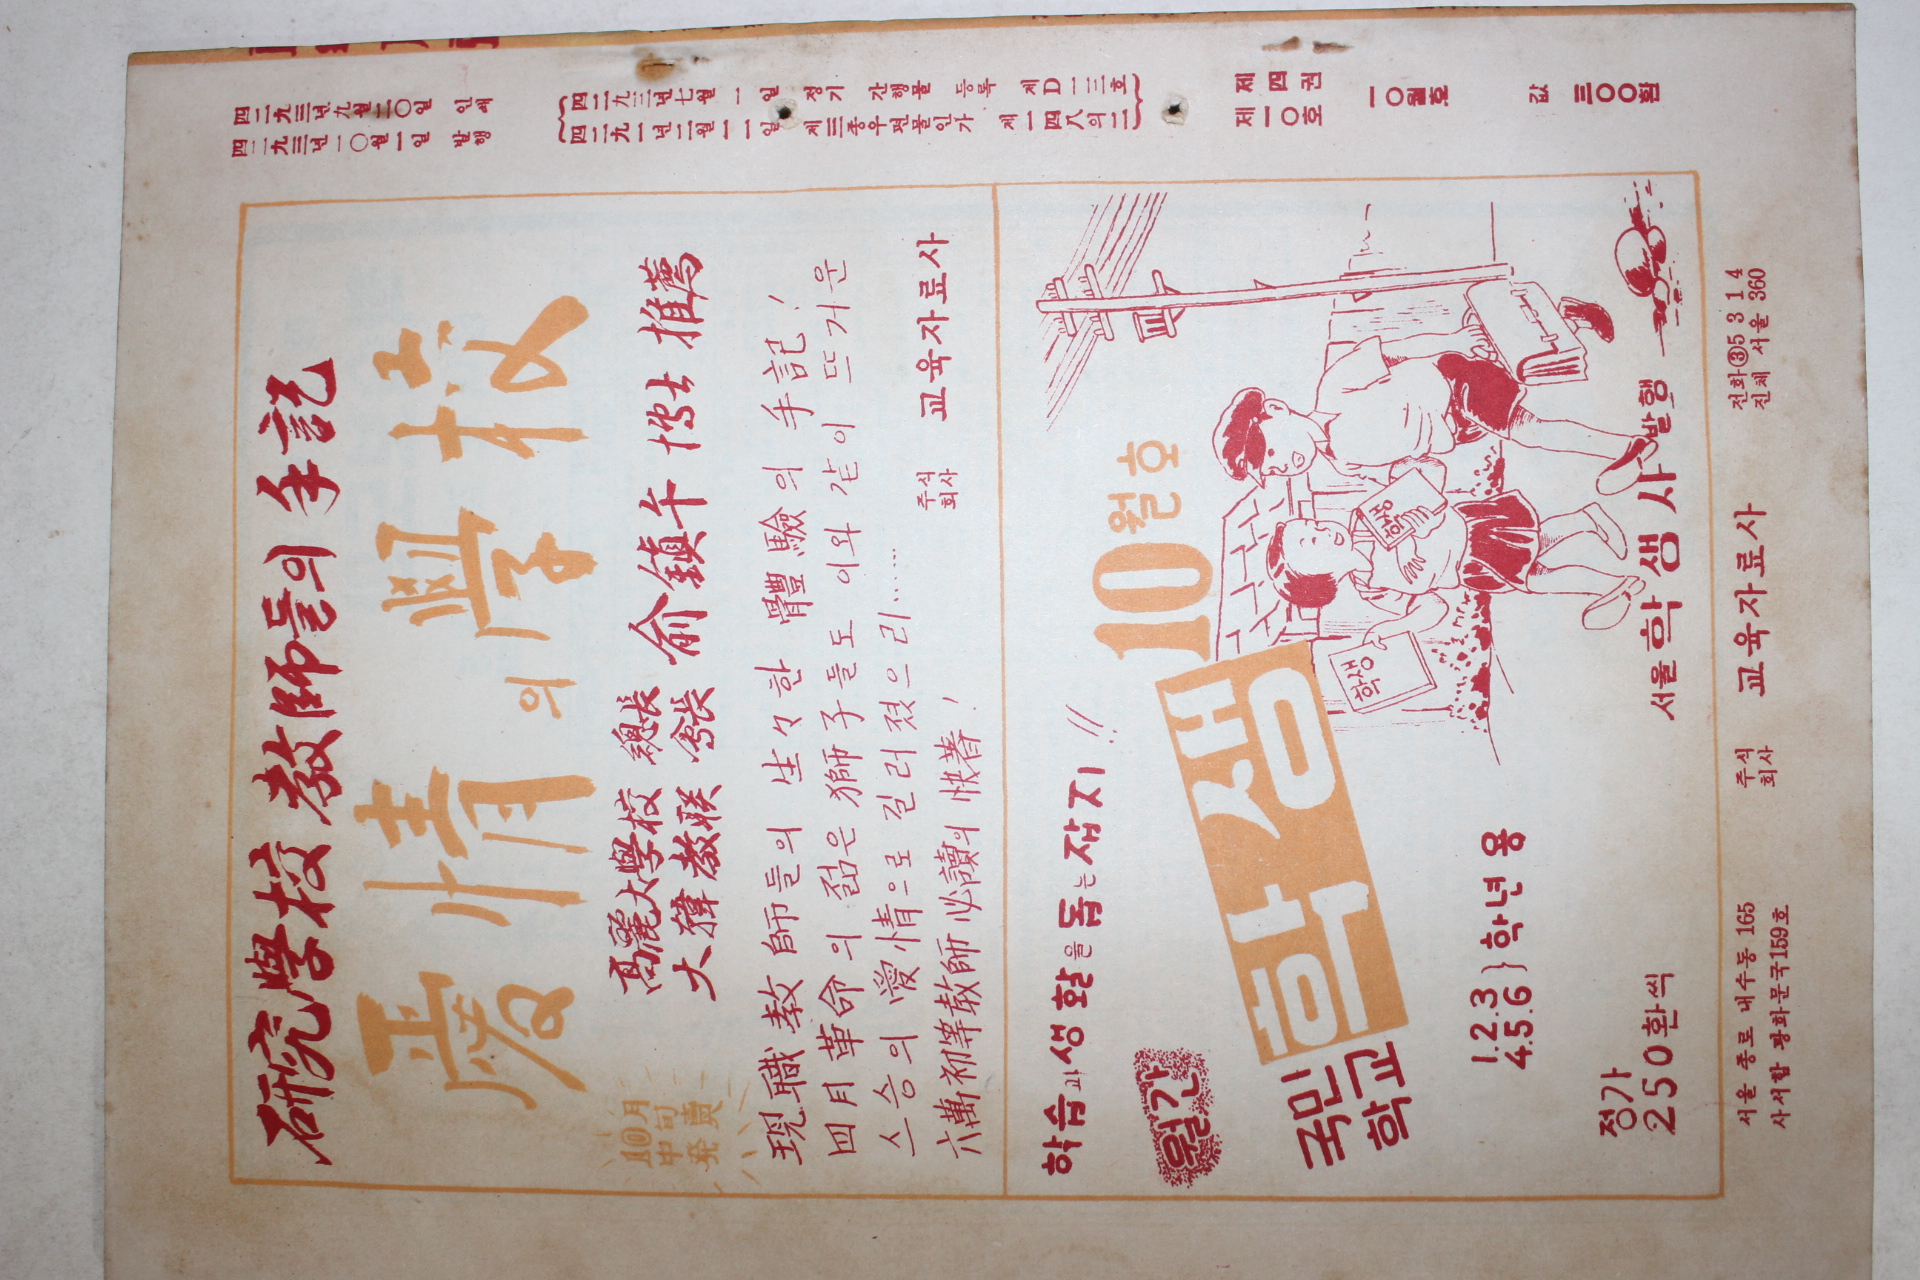 四二九三년 九월 二〇일 인쇄
四二九三년 一〇월 一일 발행
四二九三년 七월 一일 정기 간행물 등록 제D一三호
四二九一년 二월 一一일 제三종우편물인가 제一四八의 二
제四권
제一〇호
一〇월호
값 三〇〇환
研究學校 敎師들의 手記
愛情의 學校
10月
中旬
発賣
高麗大學校 總長
大韓敎聯 會長
俞鎮午 博士 推薦
現職 敎師들의 生々한 體驗의 手記!
四月革命의 젊은 獅子들도 이와 같이 뜨거운
스승의 愛情으로 길러졌으리……
六萬初等敎師 必讀의 快著!
주식
회사
교육자료사
학습과 생활을 돕는 잡지!!
월간
국민
학교
학생
10월호
학생
학생
1.2.3
4.5.6
학년용
정가
250환씩
서울 학생사 발행
서울 종로 내수동 165
사서함 광화문국159호
주식
회사
교육자료사
전화③5314
진체 서울 360